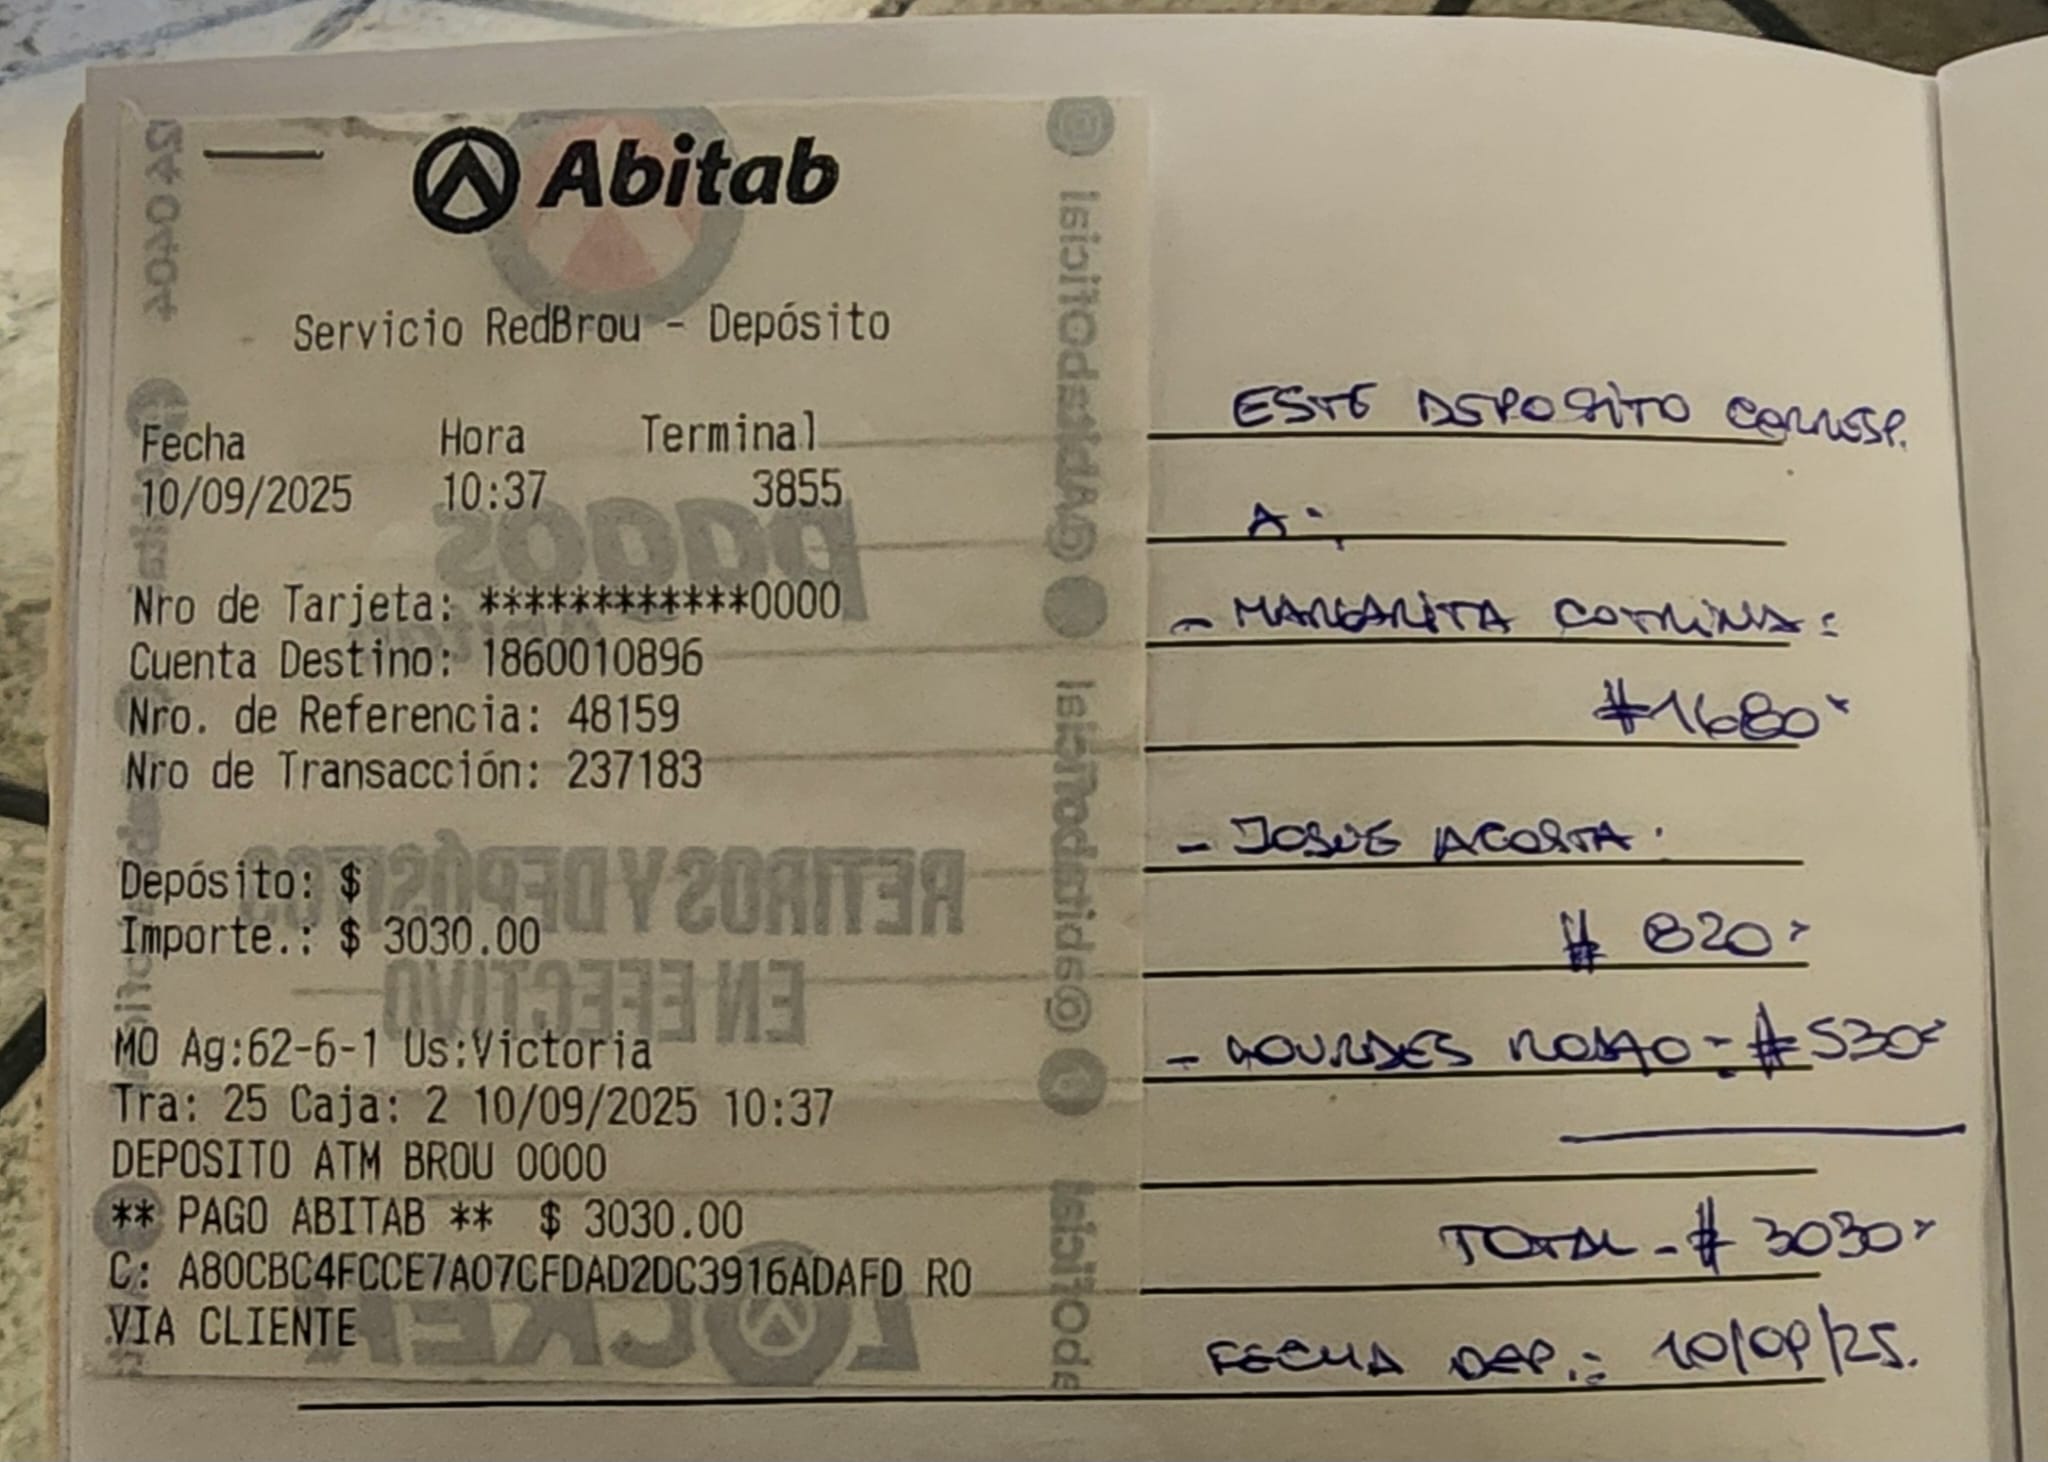 Abitab
Servicio RedBrou - Depósito
Fecha Hora Terminal
10/09/2025 10:37 3855
Nro de Tarjeta: ************0000
Cuenta Destino: 1860010896
Nro. de Referencia: 48159
Nro de Transacción: 237183
Depósito: $
Importe.: $ 3030.00
MO Ag:62-6-1 Us:Victoria
Tra: 25 Caja: 2 10/09/2025 10:37
DEPOSITO ATM BROU 0000
** PAGO ABITAB ** $ 3030.00
C: A80CBC4FCCE7A07CFDAD2DC3916ADAFD RO
VIA CLIENTE
ESTE DEPOSITO CORRESP.
A:
- MARGARITA COTRINA:
$1680
- JOSUE ACOSTA.
$ 820
- LOURDES : $530
TOTAL - $ 3030
FECHA DEP.: 10/09/25.
24 0404
pagos
RETIROS Y DEPÓSITOS
EN EFECTIVO
LOCKER
@AbitabOficial
@abitaboficial